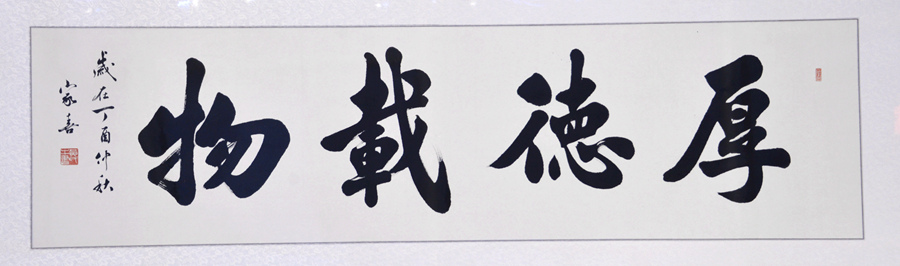 厚德載物
歲在丁酉仲秋
家喜